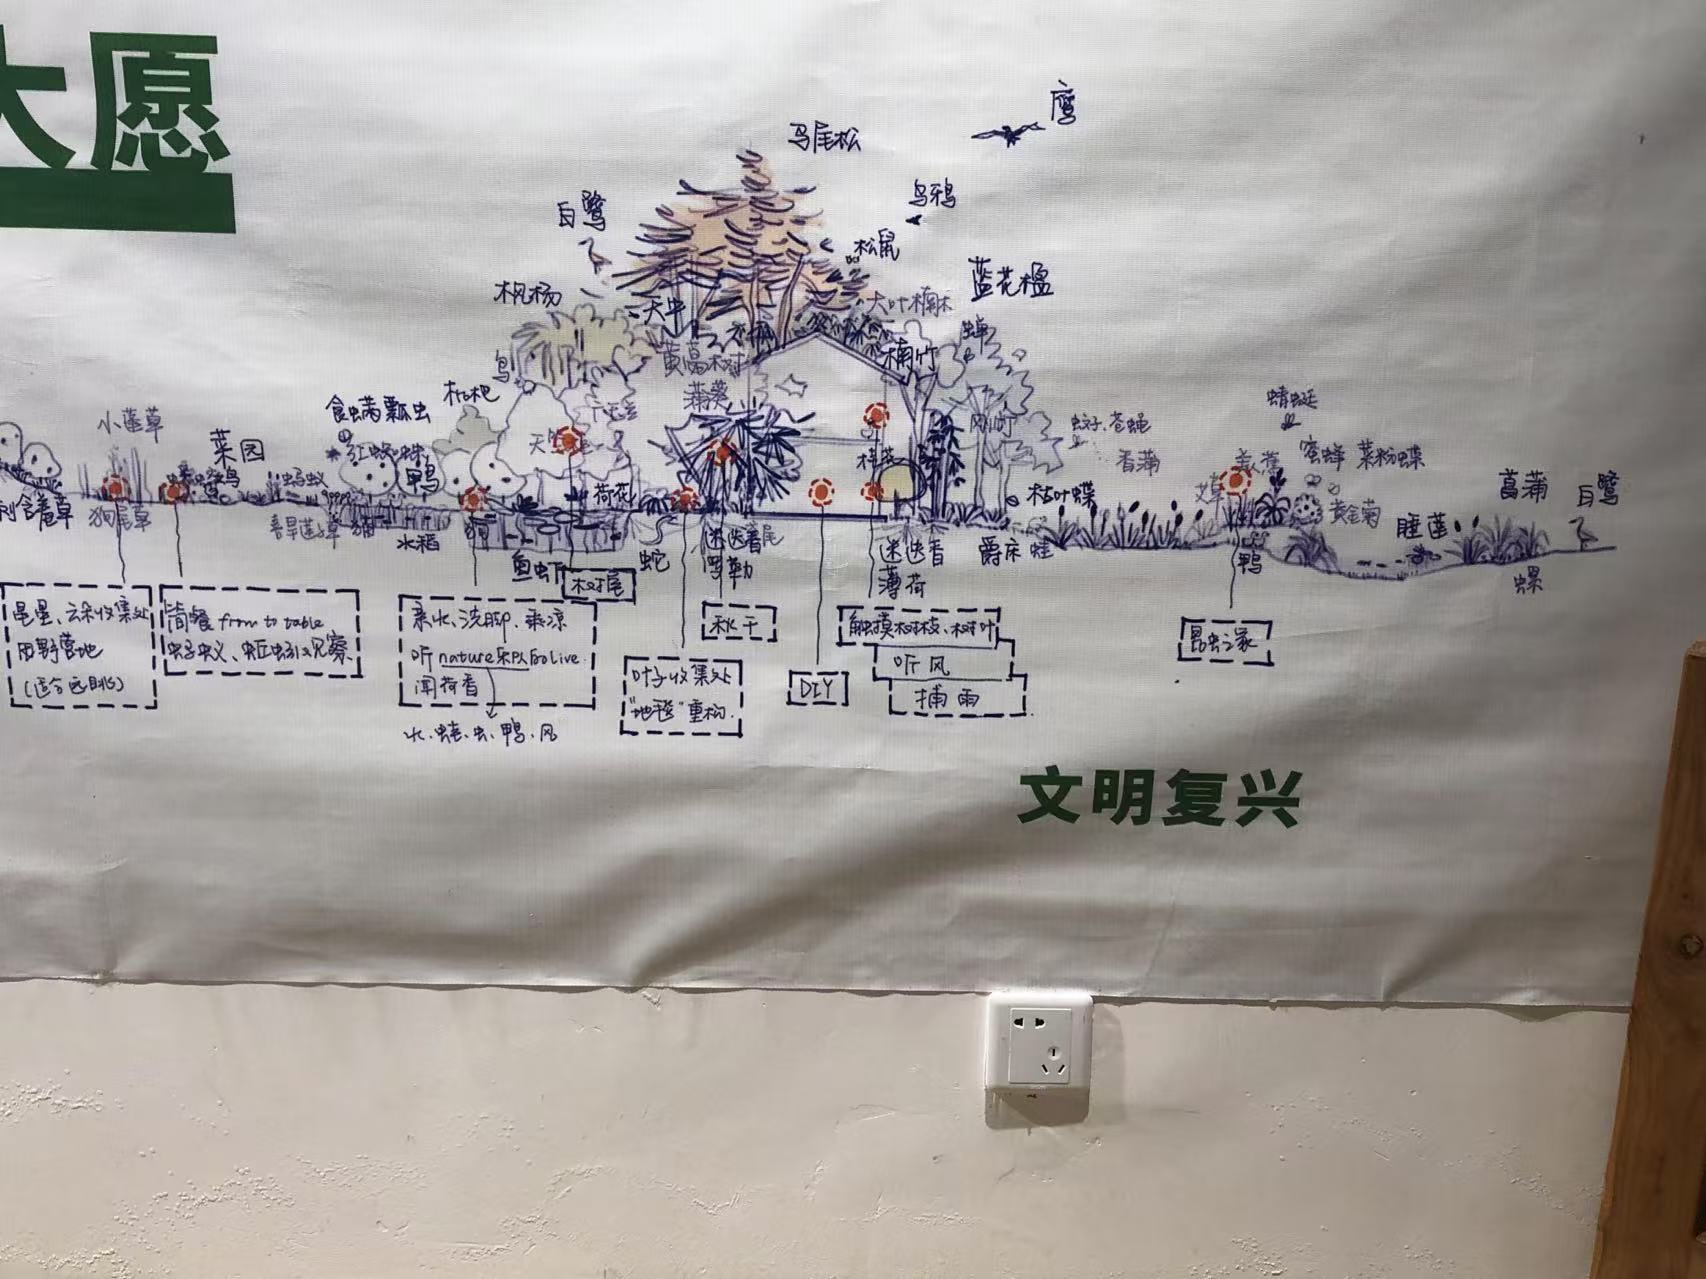 大愿
鹰
马尾松
乌鸦
白鹭
松鼠
蓝花楹
枫杨
天牛
大叶楠木
蝉
黄葛树
楠竹
鸟
枇杷
蒲葵
食蚜瓢虫
蜻蜓
小蓬草
蚊子、苍蝇
菜园
红蜘蛛
鸭
蜜蜂 菜粉蝶
香蒲
蚂蚁
荷花
枯叶蝶
艾草
菖蒲
白鹭
含羞草
狗尾草
黄金菊
睡莲
旱莲草
水稻
鱼虾
蛇
迷迭香
罗勒
迷迭香
薄荷
爵床
蛙
鸭
螺
树屋
星星、云朵收集处
田野营地
(适合远眺)
简餐 from to table
蚂蚁、蚯蚓观察
亲水、洗脚、乘凉
听nature乐队的live
闻荷香
水、蛙、虫、鸭、风
叶子收集处
"地毯"重构
秋千
DIY
触摸树枝、树叶
听风
捕雨
昆虫之家
文明复兴